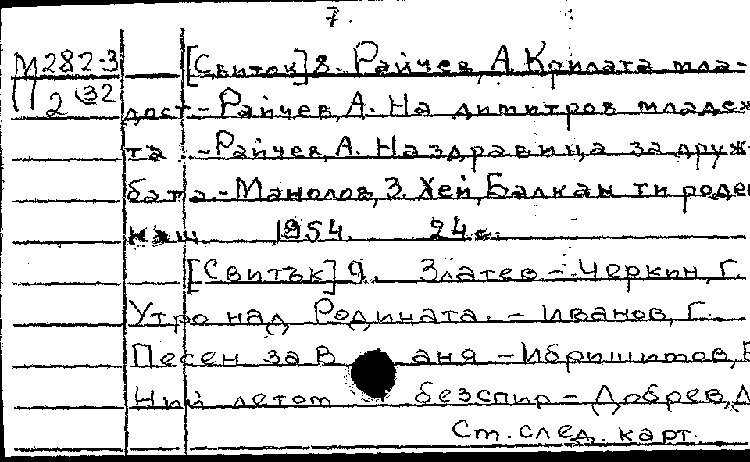 7.
М282-3 [Свитък] 8. Райчев, А. Крилата мла-
П2 32 дост - Райчев, А. На димитров младеж
та - Райчев, А. Наздравица за друж-
бата. - Манолов, З. Хей, Балкан ти роден
наш 1954. 24 с.
[Свитък] 9. Златев - Черкин, Г.
Утро над Родината. - Иванов, Г.
Песен за В аня - Ибришимов,
Ний летот безспир - Добрев, Д
Ст. след. карт.